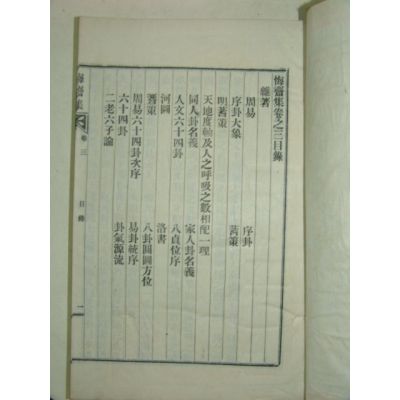 悔齋集卷之三目錄
雜著
周易 序卦
序卦大象 蓍策
明蓍策
天地度軸及人之呼吸之數相配一理
同人卦名義 家人卦名義
人文六十四卦 八貞位序
河圖 洛書
蓍策 八卦圓圖方位
周易六十四卦次序 易卦統序
六十四卦 卦氣源流
二老六子論
悔齋集 卷三 目錄 一